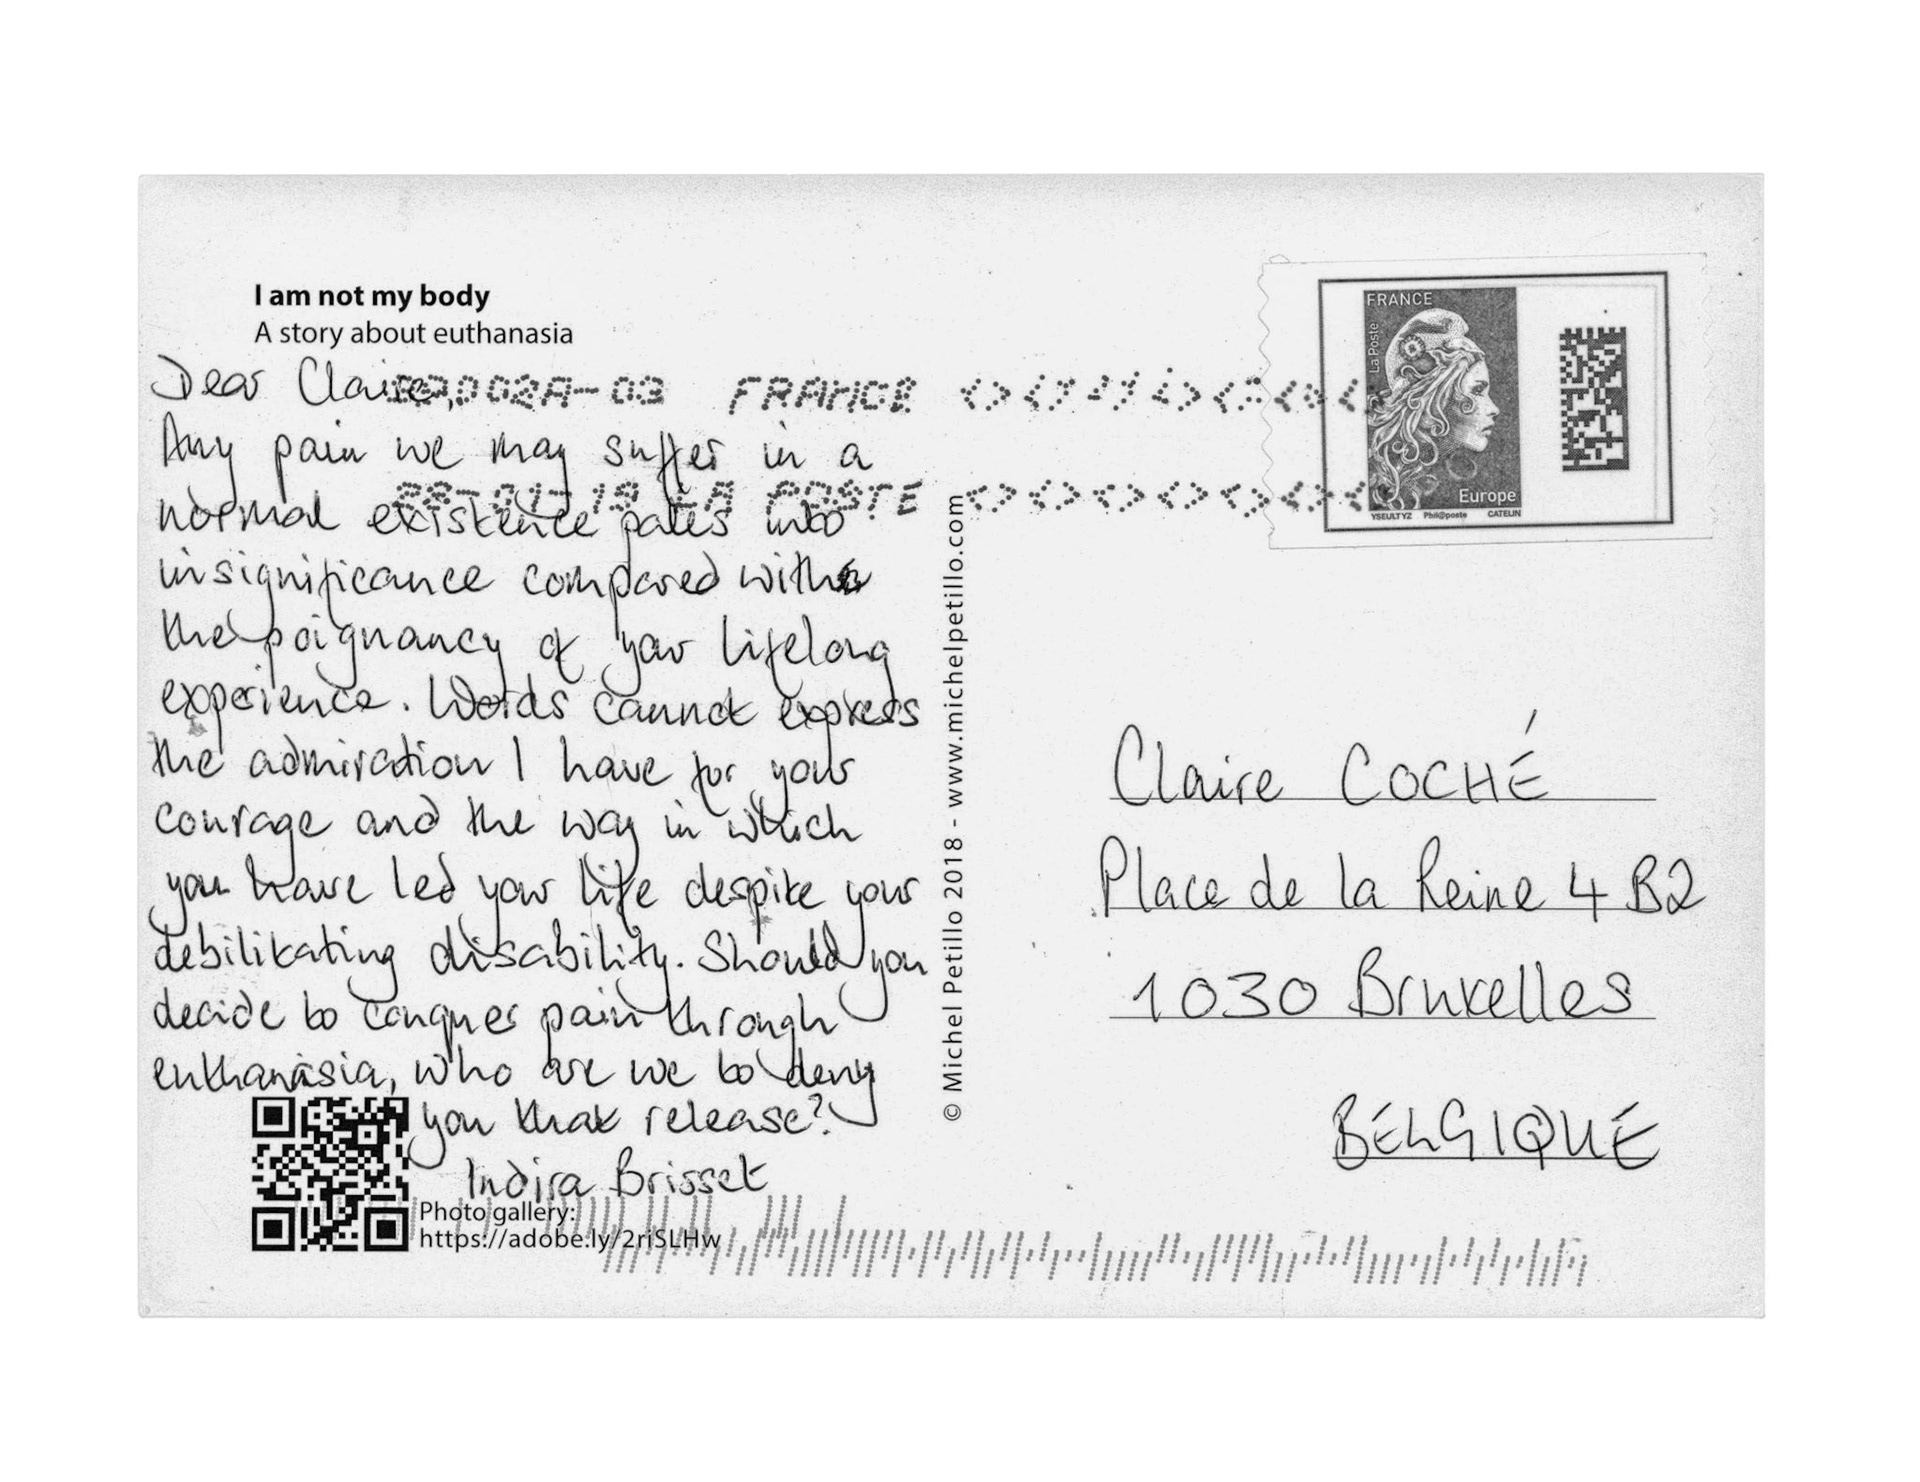 I am not my body
A story about euthanasia
Dear Claire,
Any pain we may suffer in a
normal existence pales into
insignificance compared with
the poignancy of your lifelong
experience. Words cannot express
the admiration I have for your
courage and the way in which
you have led your life despite your
debilitating disability. Should you
decide to conquer pain through
euthanasia, who are we to deny
you that release?
Indira Brisset
Photo gallery:
https://adobe.ly/2riSLHw
-03 FRANCE
-01-19 LA POSTE
© Michel Petillo 2018 - www.michelpetillo.com
FRANCE
La Poste
Europe
YSEULTYZ Phil@poste CATELIN
Claire COCHÉ
Place de la Reine 4 B2
1030 Bruxelles
BÉLGIQUÉ